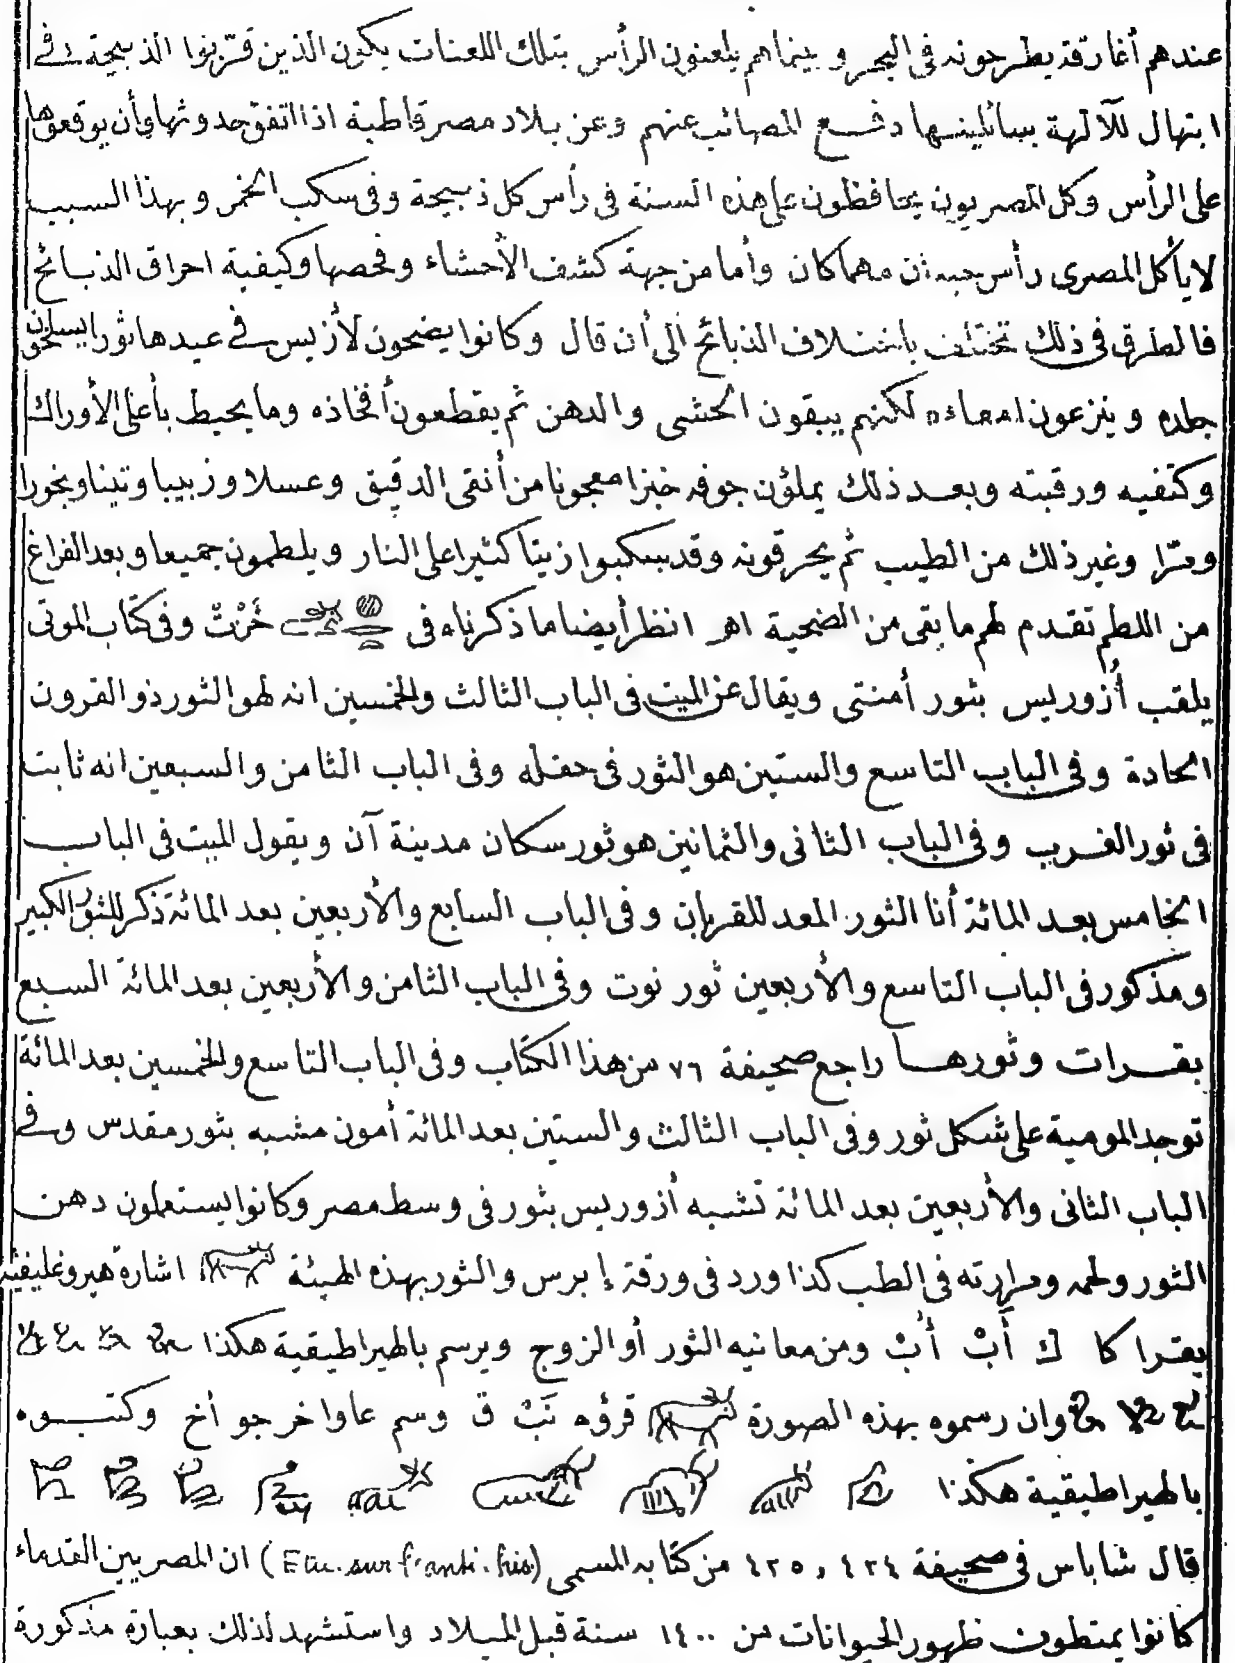 عندهم أغارقة يطرحونه فى البحر و بينماهم يلعنون الرأس بتلك اللعنات يكون الذين قرّبوا الذبيحة فى
ابتهال للآلهة يسائلينها دفع المصائب عنهم وعن بلاد مصر قاطبة اذا اتفق حدوثها وأن يوقعوها
على الرأس وكل المصريون يحافظون على هذه السنة فى رأس كل ذبيحة وفى سكب الخمر و بهذا السبب
لا يأكل المصرى رأس حيوان مهما كان وأما من جهة كشف الأحشاء وفحصها وكيفية احراق الذبائح
فالطرق فى ذلك تختلف باختلاف الذبائح الى أن قال وكانوا يضحون لأزيس فى عيدها ثورا يسلخون
جلده و ينزعون امعاءه لكنهم يبقون الحشى والدهن ثم يقطعون أفخاذه وما يحيط بأعلى الأوراك
وكتفيه ورقبته وبعد ذلك يملؤن جوفه خبزا معجونا من أنقى الدقيق وعسلا وزبيبا وتينا وبخورا
ومرّا وغير ذلك من الطيب ثم يحرقونه وقد سكبوا زيتا كثيرا على النار ويلطمون جميعا وبعد الفراغ
من اللطم تقدم لهم ما بقى من الضحية اهـ انظر أيضا ما ذكرناه فى خَرْتْ وفى كتاب الموتى
يلقب أُزوريس بثور أمنتى ويقال عن الميت فى الباب الثالث والخمسين انه لهو الثور ذو القرون
الحادة وفى الباب التاسع والستين هو الثور فى حقله وفى الباب الثامن والسبعين انه ثابت
فى ثور الغرب وفى الباب الثانى والثمانين هو ثور سكان مدينة آن ويقول الميت فى الباب
الخامس بعد المائة أنا الثور المعد للقربان وفى الباب السابع والأربعين بعد المائة ذكر للثور الكبير
ومذكور فى الباب التاسع والأربعين ثور نوت وفى الباب الثامن والأربعين بعد المائة السبع
بقرات وثورها راجع صحيفة ٧٦ من هذا الكتاب وفى الباب التاسع والخمسين بعد المائة
توجد المومية على شكل ثور وفى الباب الثالث والستين بعد المائة أمون مشبه بثور مقدس وفى
الباب الثانى والأربعين بعد المائة تشبه أزوريس بثور فى وسط مصر وكانوا يستعملون دهن
الثور ولحمه ومرارته فى الطب كذا ورد فى ورقة إبرس والثور بهذه الهيئة اشارة هيروغليفية
يقرا كا ك أَبْ أُبْ ومن معانيه الثور أو الزوج ويرسم بالهيراطيقية هكذا
وان رسموه بهذه الصورة قرؤه نَبْ ق وسم عاوا خر جو أخ وكتبوه
بالهيراطيقية هكذا
قال شاباس فى صحيفة ٤٢٤ و ٤٢٥ من كتابه المسمى (Etu. sur f. anti. his) ان المصريين القدماء
كانوا يمتطون ظهور الحيوانات من ١٤٠٠ سنة قبل الميلاد واستشهد لذلك بعبارة مذكورة